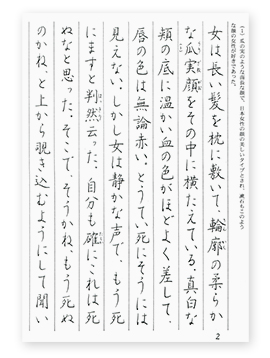 （1）瓜の実のような面長な顔で、日本女性の顔の美しいタイプとされ、漱石もこのよう
な顔の女性が好きであった。
女は長い髪を枕に敷いて、輪郭の柔らか
な瓜実顔をその中に横たえている。真白な
頬の底に温かい血の色がほどよく差して、
唇の色は無論赤い。とうてい死にそうには
見えない。しかし女は静かな声で、もう死
にますと判然云った。自分も確にこれは死
ぬなと思った。そこで、そうかね、もう死ぬ
のかね、と上から覗き込むようにして聞い
2